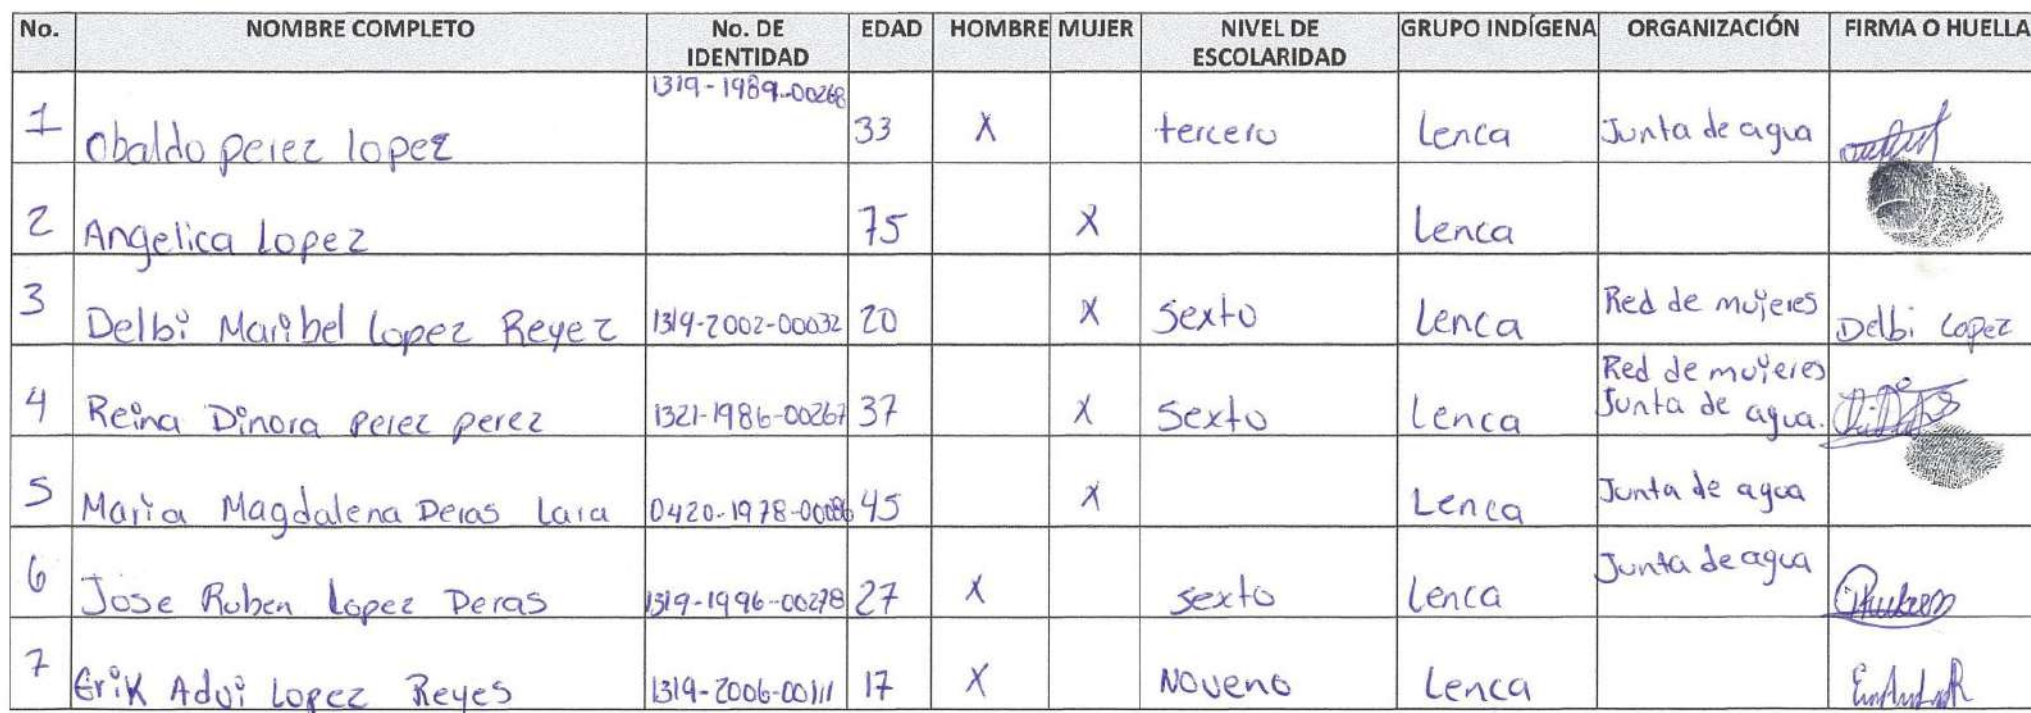 No. NOMBRE COMPLETO No. DE IDENTIDAD EDAD HOMBRE MUJER NIVEL DE ESCOLARIDAD GRUPO INDÍGENA ORGANIZACIÓN FIRMA O HUELLA
1 Obaldo perez lopez 1319-1989-00268 33 X tercero Lenca Junta de agua
2 Angelica Lopez 75 X Lenca
3 Delbi Maribel Lopez Reyez 1319-2002-00032 20 X Sexto Lenca Red de mujeres Delbi Lopez
4 Reina Dinora perez perez 1321-1986-00267 37 X Sexto Lenca Red de mujeres Junta de agua.
5 Maria Magdalena Deras Lara 0420-1978-00086 45 X Lenca Junta de agua
6 Jose Ruben Lopez Deras 1319-1996-00278 27 X sexto Lenca Junta de agua
7 Erik Advi Lopez Reyes 1319-2006-00111 17 X Noveno Lenca